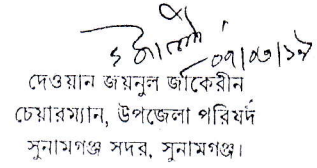 ০৭/০৩/১৯
দেওয়ান জয়নুল জাকেরীন
চেয়ারম্যান, উপজেলা পরিষদ
সুনামগঞ্জ সদর, সুনামগঞ্জ।